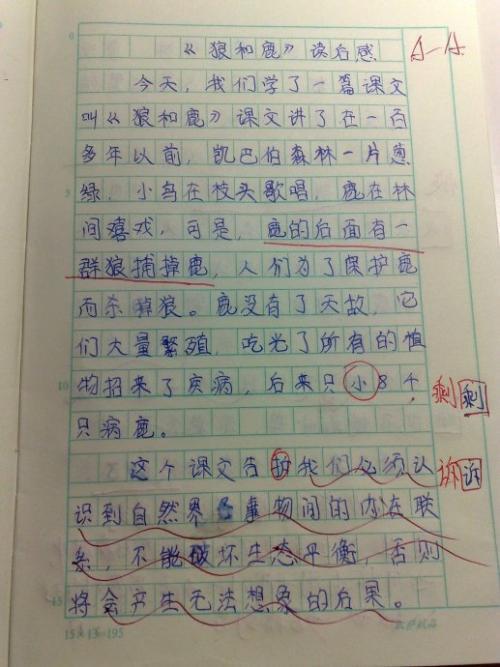 《狼和鹿》读后感 A-A
今天，我们学了一篇课文
叫《狼和鹿》课文讲了在一百
多年以前，凯巴伯森林一片葱
绿，小鸟在枝头歌唱，鹿在林
间嬉戏，可是，鹿的后面有一
群狼捕掉鹿，人们为了保护鹿
而杀掉狼。鹿没有了天敌，它
们大量繁殖，吃光了所有的植
物招来了疾病，后来只小8千 剩剩
只病鹿。
这个课文告护我们必须认 诉诉
识到自然界事物间的内在联
系，不能破坏生态平衡，否则
将会产生无法想象的后果。
15×13=195